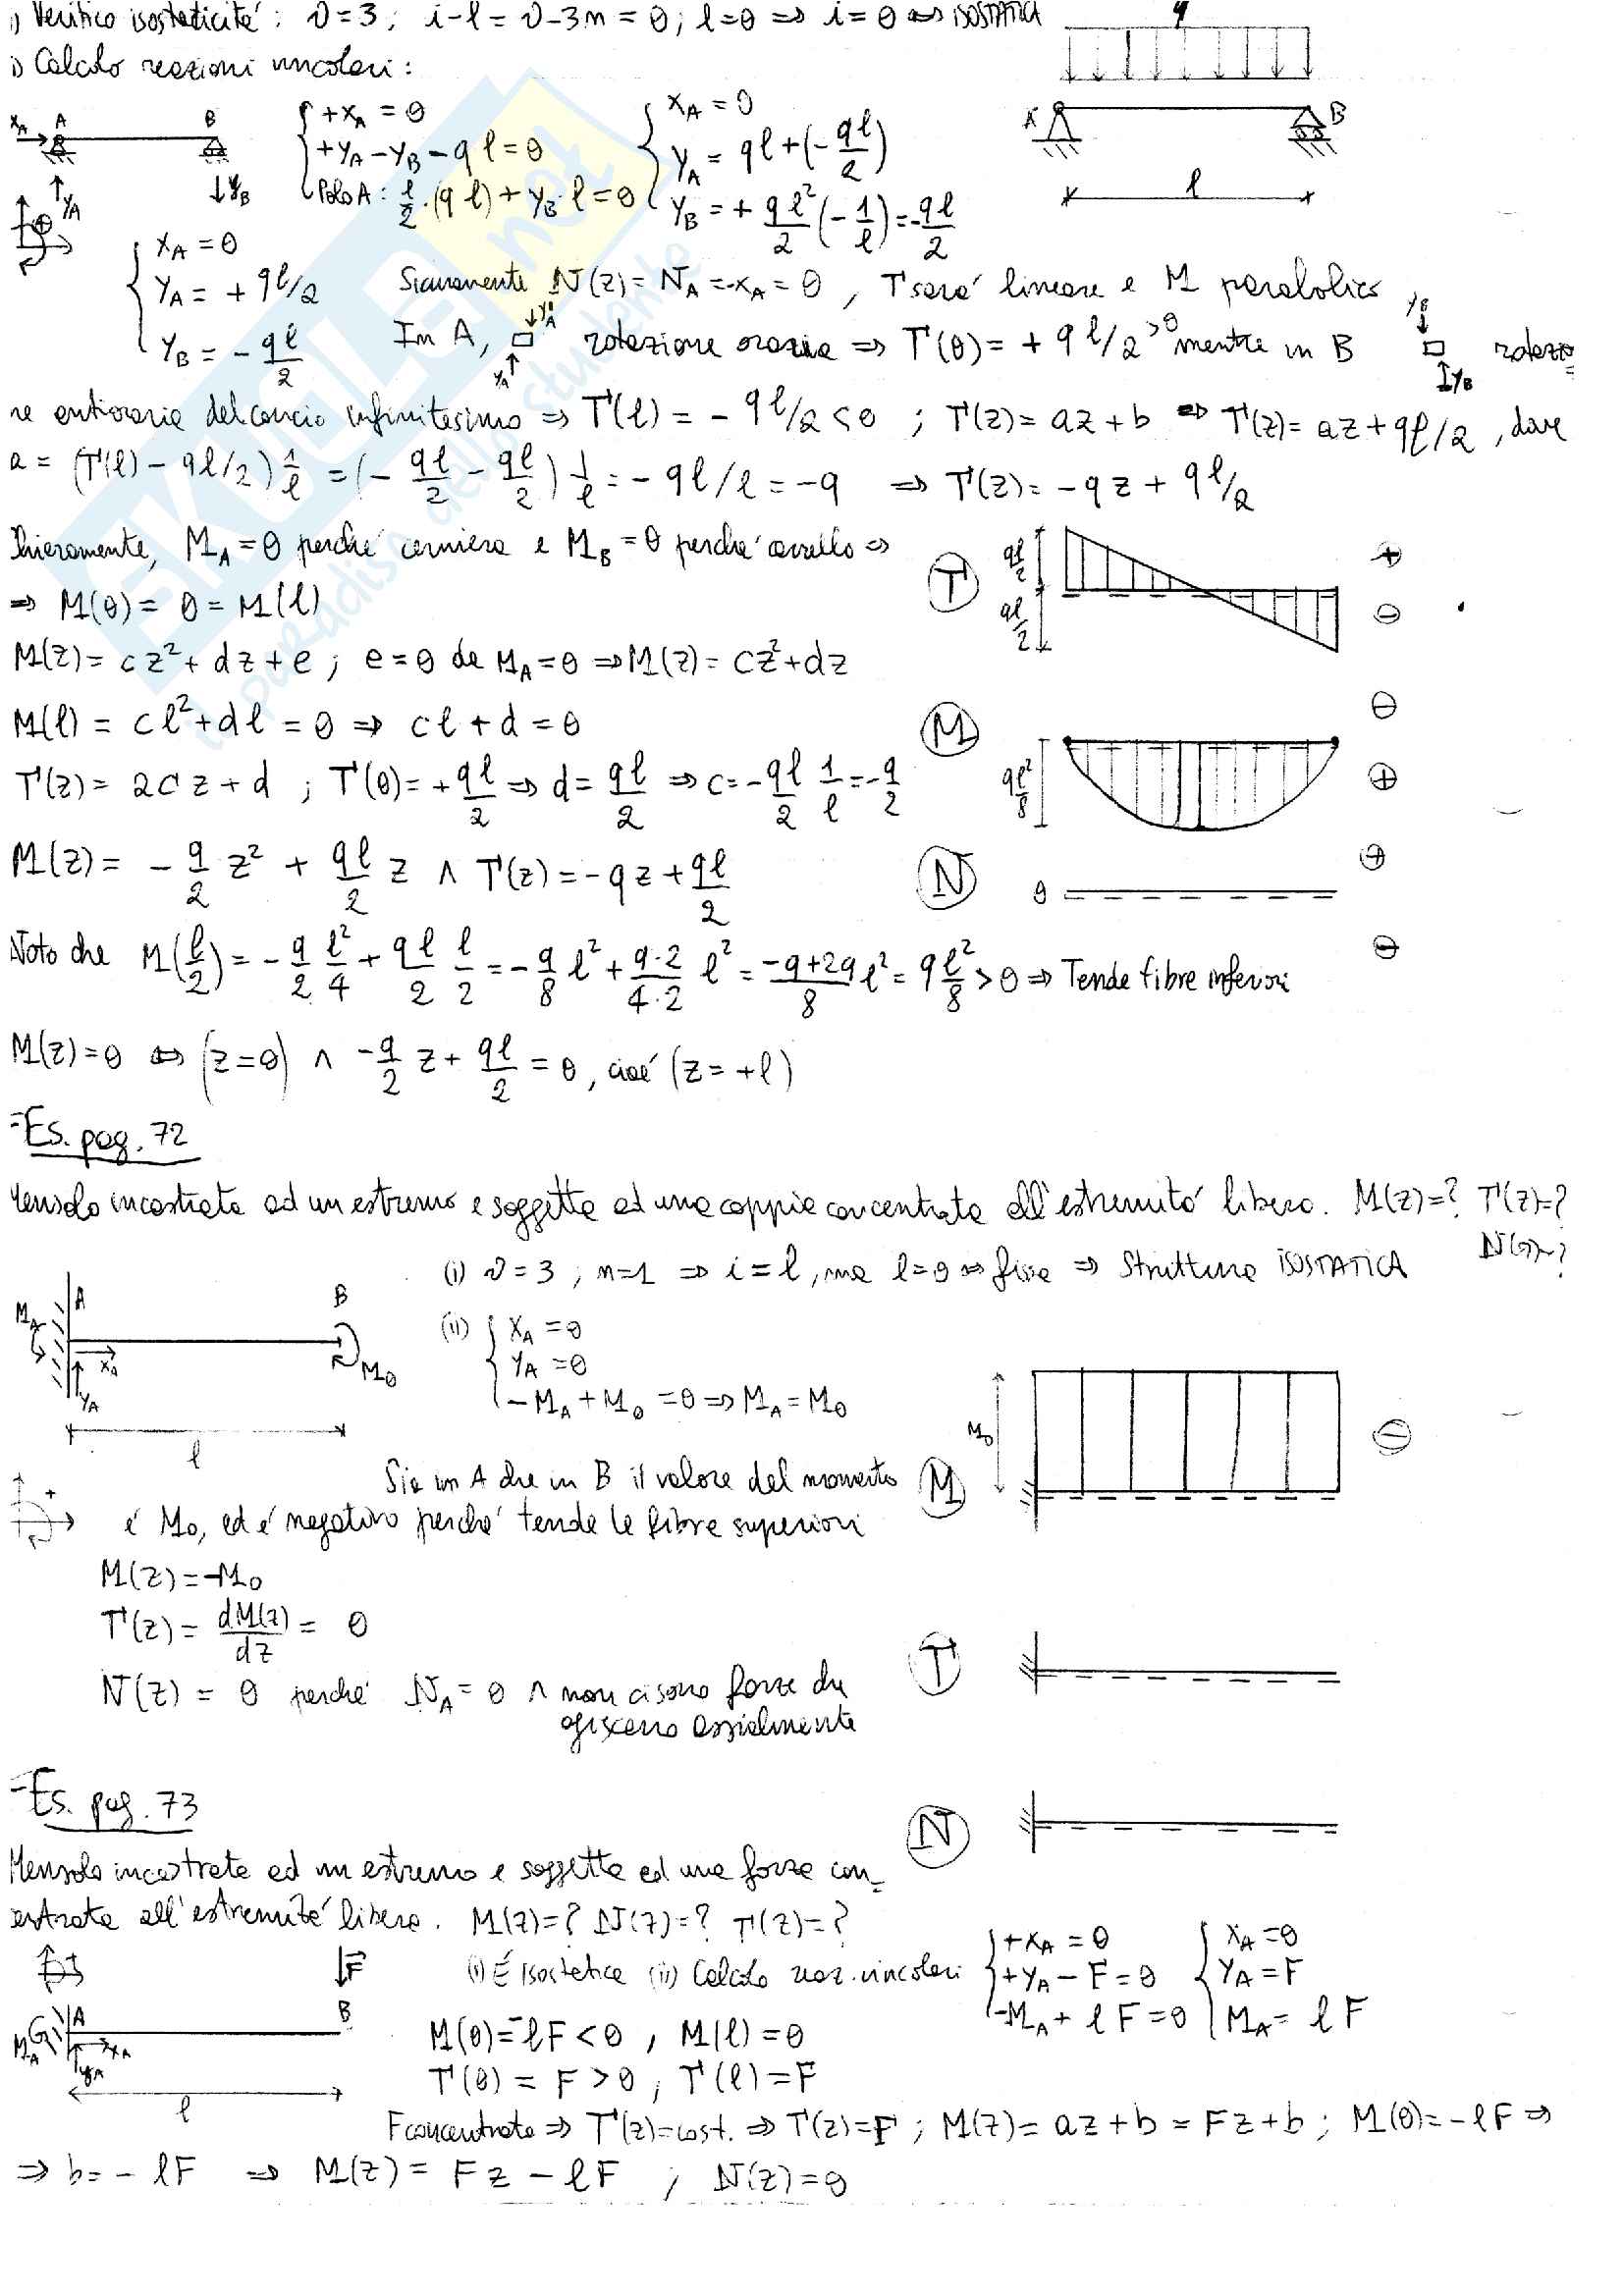 i) Verifico isostaticità: ν=3; i-l = ν-3n = 0; l=0 ⇒ i=0 ⇔ ISOSTATICA
q
i) Calcolo reazioni vincolari:
X_A A B Y_A ↓Y_B
{ +X_A = 0
+Y_A - Y_B - ql = 0
Polo A: l/2·(ql) + Y_B·l = 0
{ X_A = 0
Y_A = ql+(-ql/2)
Y_B = + ql²/2 (-1/l) = -ql/2
A B
l
{ X_A = 0
Y_A = + ql/2
Y_B = - ql/2
Sicuramente N(z) = N_A = -X_A = 0, T sarà lineare e M parabolico
In A, ↓Y_A ↑Y_A rotazione oraria ⇒ T(0) = + ql/2 >0 mentre in B Y_B↓ ↑Y_B rotazio-
ne antioraria del concio infinitesimo ⇒ T(l) = - ql/2 <0 ; T(z) = az + b ⇒ T(z) = az + ql/2, dove
a = (T(l) - ql/2) 1/l = (- ql/2 - ql/2) 1/l = - ql/l = -q ⇒ T(z) = -qz + ql/2
Chiaramente, M_A = 0 perché cerniera e M_B = 0 perché carrello ⇒
⇒ M(0) = 0 = M(l)
T ql/2 ql/2 + -
M(z) = cz² + dz + e ; e = 0 da M_A = 0 ⇒ M(z) = cz² + dz
M(l) = cl² + dl = 0 ⇒ cl + d = 0
M ql²/8 - +
T(z) = 2cz + d ; T(0) = + ql/2 ⇒ d = ql/2 ⇒ c = - ql/2 1/l = - q/2
M(z) = - q/2 z² + ql/2 z ∧ T(z) = -qz + ql/2
N 0 + -
Noto che M(l/2) = - q/2 l²/4 + ql/2 l/2 = - q/8 l² + q·2/4·2 l² = -q+2q/8 l² = q l²/8 > 0 ⇒ Tende fibre inferiori
M(z) = 0 ⇔ (z=0) ∧ -q/2 z + ql/2 = 0, cioè (z = +l)
- Es. pag. 72
Mensola incastrata ad un estremo e soggetta ad una coppia concentrata all'estremità libera. M(z)=? T(z)=?
N(z)=?
(i) ν=3 ; n=1 ⇒ i = l, ma l=0 ⇔ fisse ⇒ Struttura ISOSTATICA
M_A A B X_A Y_A M_0
l
(ii) { X_A = 0
Y_A = 0
-M_A + M_0 = 0 ⇒ M_A = M_0
M M_0 -
Sia in A che in B il valore del momento
è M_0, ed è negativo perché tende le fibre superiori
M(z) = -M_0
T(z) = dM(z)/dz = 0
T
N(z) = 0 perché N_A = 0 ∧ non ci sono forze che
agiscono assialmente
- Es. pag. 73
N
Mensola incastrata ad un estremo e soggetta ad una forza con-
centrata all'estremità libera. M(z)=? N(z)=? T(z)=?
M_A A B F X_A Y_A
l
(i) È isostatica (ii) Calcolo reaz. vincolari { +X_A = 0
+Y_A - F = 0
-M_A + lF = 0
{ X_A = 0
Y_A = F
M_A = lF
M(0) = -lF < 0, M(l) = 0
T(0) = F > 0 ; T(l) = F
F concentrata ⇒ T(z) = cost. ⇒ T(z) = F ; M(z) = az + b = Fz + b ; M(0) = -lF ⇒
⇒ b = - lF ⇒ M(z) = Fz - lF ; N(z) = 0